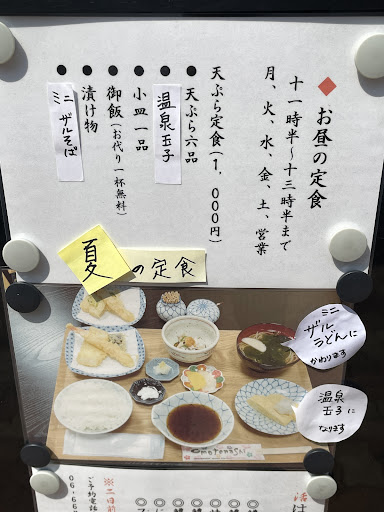 ◆ お昼の定食
十一時半〜十三時半まで
月、火、水、金、土、営業
天ぷら定食(1,000円)
● 天ぷら六品
● 温泉玉子
● 小皿一品
● 御飯(お代り一杯無料)
● 漬け物
● ミニザルそば
夏の定食
ミニ
ザル
うどんに
かわります
温泉
玉子に
なります
Omotenashi
※二日前
ご予約電話
06.66